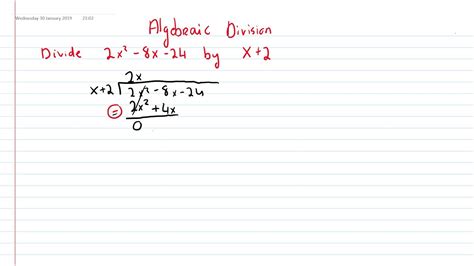 Wednesday 30 January 2019 21:02
Algebraic Division
Divide 2x² - 8x - 24 by x+2
2x
x+2 2x² - 8x - 24
= 2x² + 4x
0